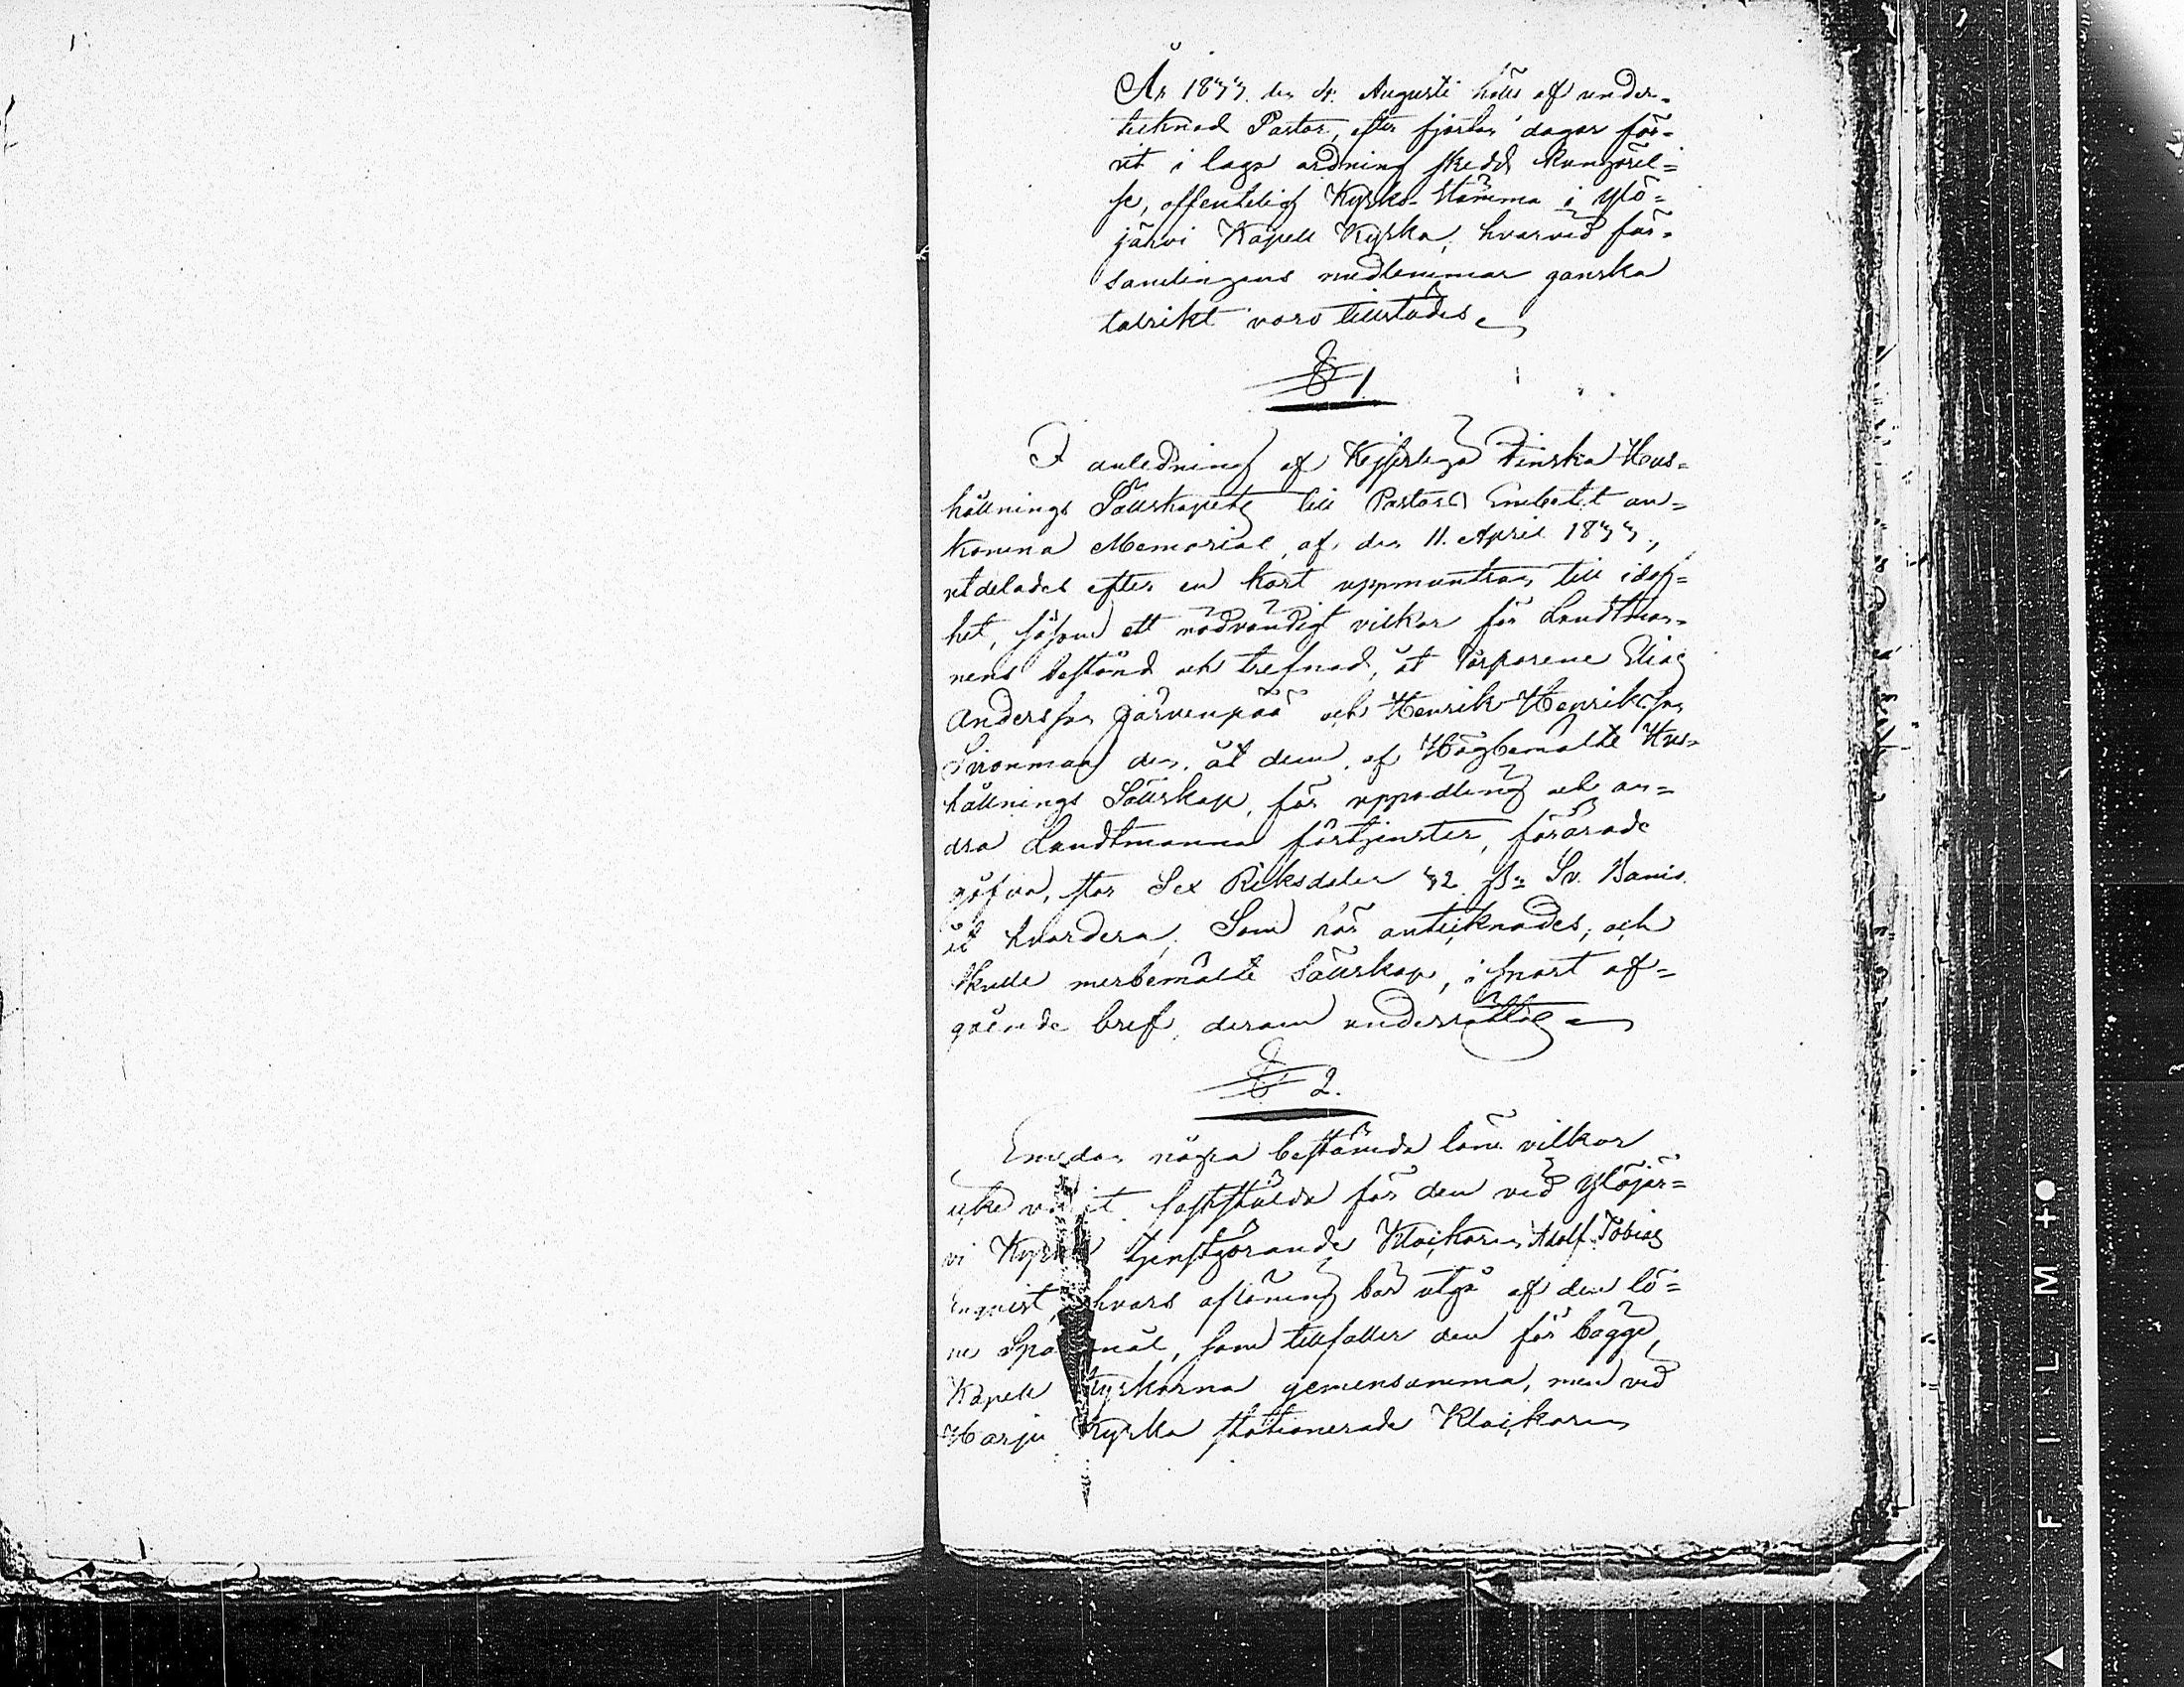 År 1833 den 4. Augusti hölls af under-
tecknad Pastor, efter fjorton dagar för-
ut i laga ordning skedd kungörel=
se, offentelig Kyrko-Stämma i Ylö=
järvi Kapell Kyrka, hvarvid för-
samlingens medlemmar ganska
talrikt voro tillstädes
§ 1
I anledning af Kejserliga Finska Hus=
hållnings Sällskapets till Pastors Embetet an=
komna Memorial, af den 11. April 1833,
utdelades efter en kort uppmuntran till idog=
het, såsom ett nödvändigt vilkor för Landtman-
nens bestånd och trefnad, åt Torparene Elias
Andersson Järvenpää och Henrik Henriksson
den åt dem af Högbemälte Hus-
hållnings Sällskap, för uppodling och an=
dra Landtmanna förtjenster, förärade
gåfva, stor Sex Riksdaler 32 s: Sv. Banco
åt hvardera; Som här antecknades, och
skulle merbemälte Sällskap, i snart af=
gående bref, derom underrättas
§ 2.
Emedan några bestämda löne vilkor
icke varit fastställda för den vid Ylöjär=
vi Kyrka tjenstgörande Klockaren Adolf Tobias
Enqvist, hvars aflöning bör utgå af den lö=
ne Spanmål, som tillfaller den för bägge
Kapell Kyrkorna gemensamma, men vid
Harju Kyrka stationerade Klockaren
FILM